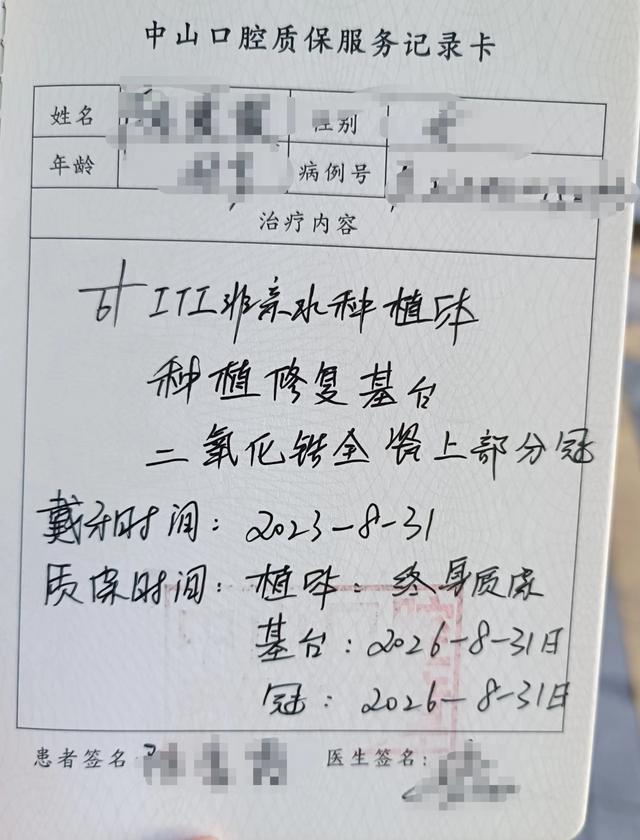 中山口腔质保服务记录卡
姓名 性别
年龄 病例号
治疗内容
6 ITI非亲水种植体
种植修复基台
二氧化锆全瓷上部分冠
戴牙时间：2023-8-31
质保时间：植体：终身质保
基台：2026-8-31日
冠：2026-8-31日
患者签名 医生签名：